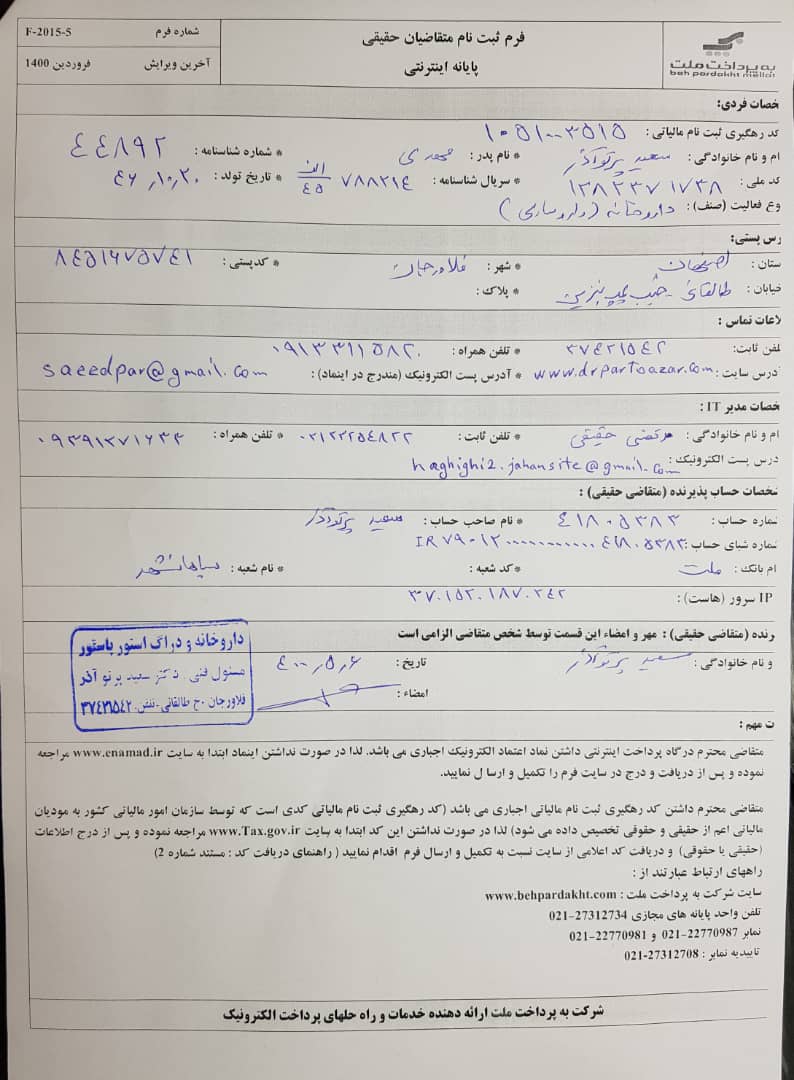 به پرداخت ملت
beh pardakht mellat
فرم ثبت نام متقاضیان حقیقی
پایانه اینترنتی
شماره فرم F-2015-5
آخرین ویرایش فروردین 1400
خصات فردی:
کد رهگیری ثبت نام مالیاتی : ۱۰۵۱۰۰۳۵۱۵
ام و نام خانوادگی : سعید پرتوآذر * نام پدر : * شماره شناسنامه : ۴۴۸۹۲
کد ملی : ۱۲۸۲۳۷۱۷۳۸ * سریال شناسنامه : ۷۸۸۲۱۴ الف ۴۵ * تاریخ تولد : ۴۶,۱۰,۲۰
وع فعالیت (صنف) : داروخانه (داروسازی)
رس پستی:
ستان : اصفهان * شهر : فلاورجان * کدپستی : ۸۴۵۱۶۷۵۷۴۱
خیابان : طالقانی - جنب پمپ بنزین * پلاک :
لاعات تماس :
لفن ثابت: ۳۷۴۲۱۵۴۲ * تلفن همراه : ۰۹۱۳۳۱۱۵۸۲۰
درس سایت : www.drpartoazar.com * آدرس پست الکترونیک (مندرج در اینماد) : saeedpar@gmail.com
خصات مدیر IT :
ام و نام خانوادگی : مرتضی حقیقی * تلفن ثابت : ۰۲۱۲۲۲۵۴۸۲۲ * تلفن همراه : ۰۹۳۹۱۲۷۱۶۳۳
درس پست الکترونیک : haghighi2.jahansite@gmail.com
شخصات حساب پذیرنده (متقاضی حقیقی) :
شماره حساب : ۴۱۸۰۵۳۸۳ * نام صاحب حساب : سعید پرتوآذر
شماره شبای حساب : IR۷۹۰۱۲۰۰۰۰۰۰۰۰۰۰۰۰۴۱۸۰۵۳۸۳
ام بانک : ملت * کد شعبه : * نام شعبه : سپاهانشهر
IP سرور (هاست) : ۳۷.۱۵۲.۱۸۷.۲۴۲
رنده (متقاضی حقیقی) : مهر و امضاء این قسمت توسط شخص متقاضی الزامی است
و نام خانوادگی : سعید پرتوآذر تاریخ : ۴۰۰,۵,۶
امضاء :
داروخانه و دراگ استور پاستور
مسئول فنی : دکتر سعید پرتو آذر
فلاورجان - خ طالقانی - تلفن: ۳۷۴۲۱۵۴۲
ت مهم :
متقاضی محترم درگاه پرداخت اینترنتی داشتن نماد اعتماد الکترونیک اجباری می باشد. لذا در صورت نداشتن اینماد ابتدا به سایت www.enamad.ir مراجعه
نموده و پس از دریافت و درج در سایت فرم را تکمیل و ارسا ل نمایید.
متقاضی محترم داشتن کد رهگیری ثبت نام مالیاتی اجباری می باشد (کد رهگیری ثبت نام مالیاتی کدی است که توسط سازمان امور مالیاتی کشور به مودیان
مالیاتی اعم از حقیقی و حقوقی تخصیص داده می شود) لذا در صورت نداشتن این کد ابتدا به سایت www.Tax.gov.ir مراجعه نموده و پس از درج اطلاعات
(حقیقی یا حقوقی) و دریافت کد اعلامی از سایت نسبت به تکمیل و ارسال فرم اقدام نمایید ( راهنمای دریافت کد : مستند شماره 2)
راههای ارتباط عبارتند از :
سایت شرکت به پرداخت ملت : www.behpardakht.com
تلفن واحد پایانه های مجازی 27312734-021
نمابر 22770987-021 و 22770981-021
تاییدیه نمابر : 27312708-021
شرکت به پرداخت ملت ارائه دهنده خدمات و راه حلهای پرداخت الکترونیک